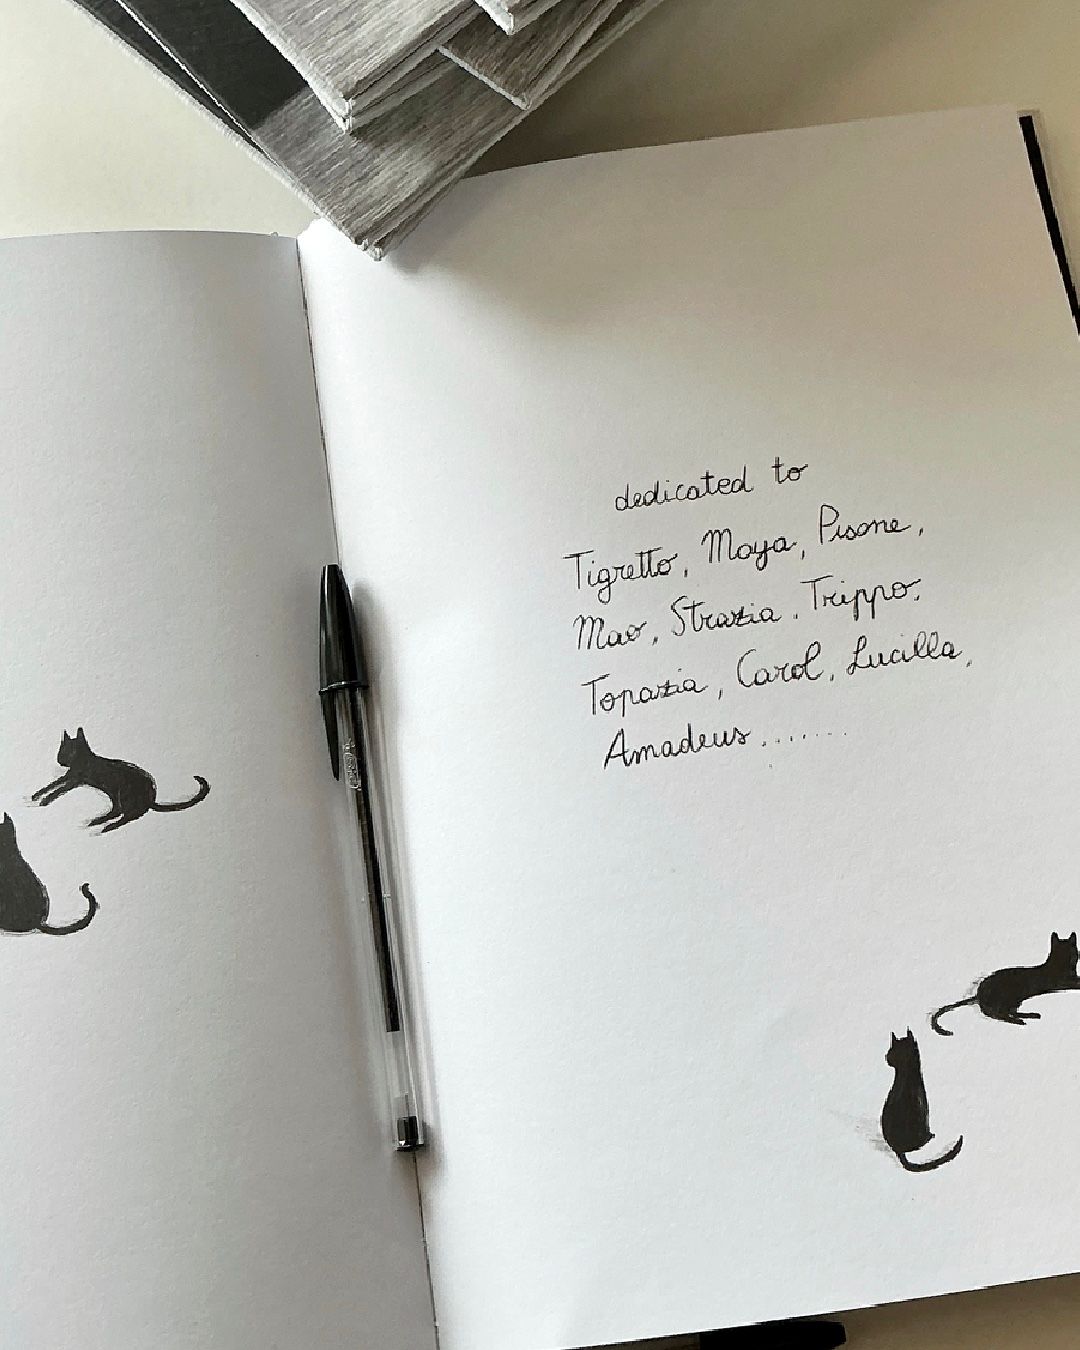 dedicated to
Tigretto, Maya, Pisone,
Mao, Strazia, Trippo,
Topazia, Carol, Lucilla,
Amadeus........